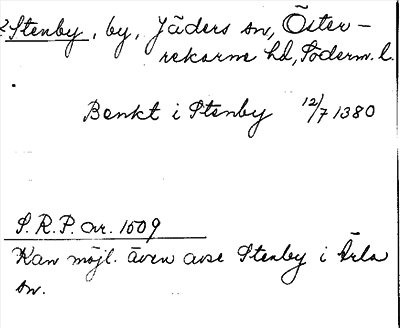 Stenby, by, Jäders sn, Öster-
rekarne hd, Söderm. l.
Benkt i Stenby 12/7 1380
S.R.P. nr. 1509
Kan möjl. även avse Stenby i Ärla
sn.